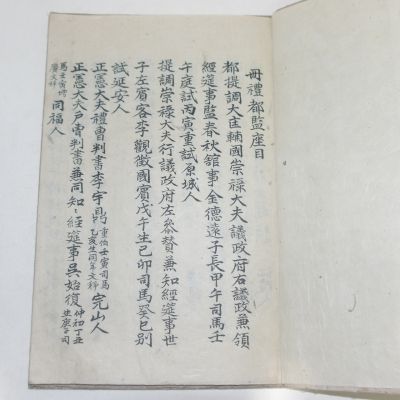 冊禮都監座目
都提調大匡輔國崇祿大夫議政府右議政兼領
經筵事監春秋館事金德遠子長甲午司馬壬
午庭試丙寅重試原城人
提調崇祿大夫行議政府左參贊兼知經筵事世
子左賓客李觀徵國賓戊午生己卯司馬癸巳別
試延安人
正憲大夫禮曹判書李宇鼎重伯壬寅司馬乙亥生同年文科完山人
正憲大夫戶曹判書兼同知〻經筵事吳始復仲初丁丑生庚子司
馬壬寅增廣文科同福人